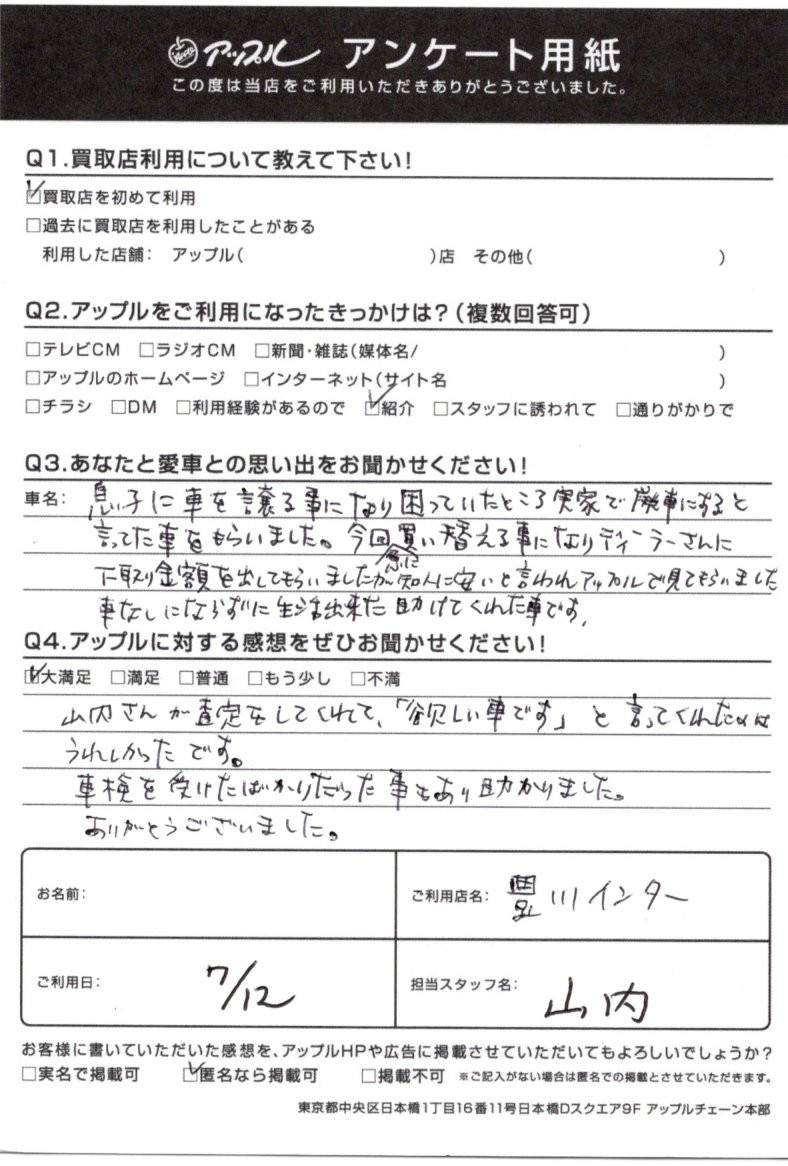 アップル アンケート用紙
この度は当店をご利用いただきありがとうございました。
Q1.買取店利用について教えて下さい!
☑買取店を初めて利用
□過去に買取店を利用したことがある
利用した店舗: アップル( )店 その他( )
Q2.アップルをご利用になったきっかけは?(複数回答可)
□テレビCM □ラジオCM □新聞・雑誌(媒体名/ )
□アップルのホームページ □インターネット(サイト名 )
□チラシ □DM □利用経験があるので ☑紹介 □スタッフに誘われて □通りがかりで
Q3.あなたと愛車との思い出をお聞かせください!
車名: 息子に車を譲る事になり困っていたところ実家で廃車にすると
言ってた車をもらいました。今回急に買い替える事になりディーラーさんに
下取り金額を出してもらいましたが知人に安いと言われアップルで見てもらいました
車なしにならずに生活出来た助けてくれた車です。
Q4.アップルに対する感想をぜひお聞かせください!
☑大満足 □満足 □普通 □もう少し □不満
山内さんが査定をしてくれて、「欲しい車です」と言ってくれたのは
うれしかったです。
車検を受けたばかりだった事もあり助かりました。
ありがとうございました。
お名前:
ご利用店名: 豊川インター
ご利用日: 7/12
担当スタッフ名: 山内
お客様に書いていただいた感想を、アップルHPや広告に掲載させていただいてもよろしいでしょうか?
□実名で掲載可 ☑匿名なら掲載可 □掲載不可 ※ご記入がない場合は匿名での掲載とさせていただきます。
東京都中央区日本橋1丁目16番11号日本橋Dスクエア9F アップルチェーン本部